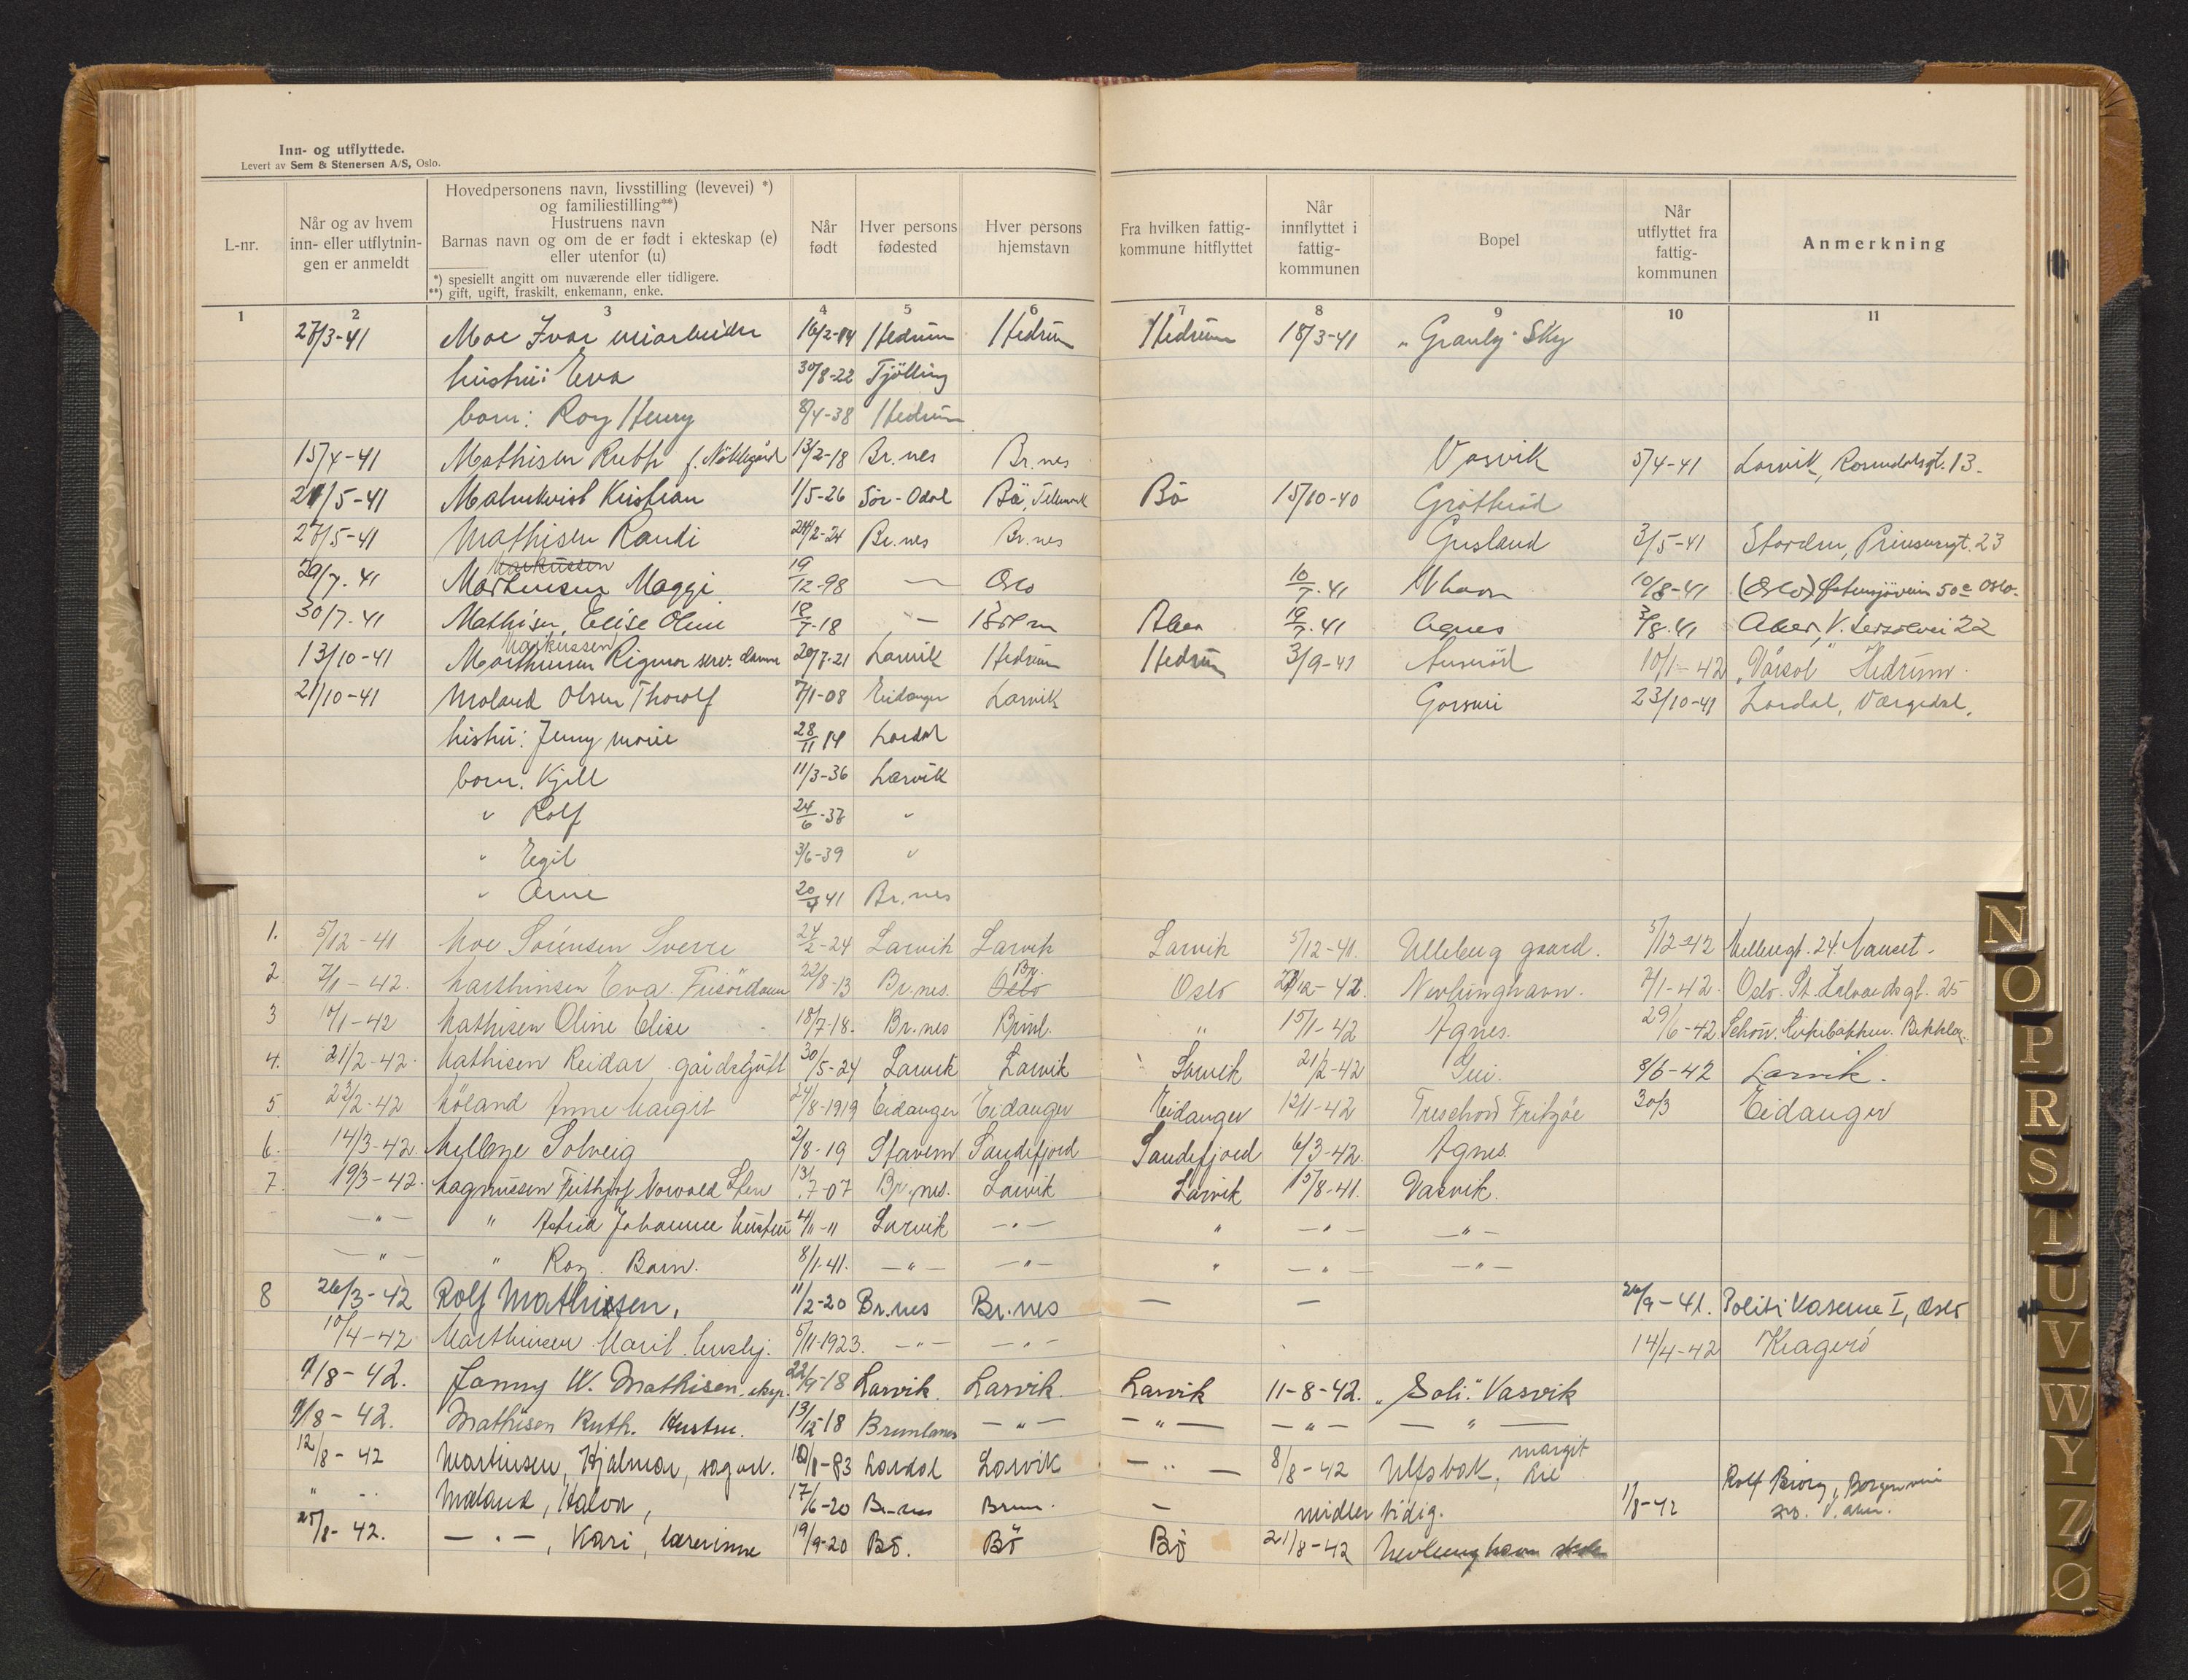 Inn- og utflyttede.
Levert av Sem & Stenersen A/S, Oslo.
L-nr.
Når og av hvem inn- eller utflytnin-gen er anmeldt
Hovedpersonens navn, livsstilling (levevei) *) og familiestilling**)
Hustruens navn
Barnas navn og om de er født i ekteskap (e) eller utenfor (u)
*) spesiellt angitt om nuværende eller tidligere.
**) gift, ugift, fraskilt, enkemann, enke.
Når født
Hver persons fødested
Hver persons hjemstavn
Fra hvilken fattig-kommune hitflyttet
Når innflyttet i fattig-kommunen
Bopel
Når utflyttet fra fattig-kommunen
Anmerkning
1 2 3 4 5 6 7 8 9 10 11
27/3-41 Moe Ivar 16/2-14 Hedrum Hedrum Hedrum 18/3-41 "Granly" Sky
hustru: Eva 30/8-22 Tjölling
barn: Roy Henry 8/4-38 Hedrum
15/4-41 Mathisen Ruth f. 13/2-18 Br.nes Br.nes Vasvik 5/4-41 Larvik, 13-
21/5-41 Malmkvist Kristian 1/5-26 Sör-Odal Bö, Telemark Bö 15/10-40
27/5-41 Mathisen Randi 24/2-24 Br.nes Br.nes Gusland 3/5-41 Prinsensgt. 23
Markussen
29/7.41 Maggi 19/12-98 — Oslo 10/7.41 N havn 10/8-41 (Oslo) 50e Oslo-
30/7.41 Mathisen, Elise Oline 18/7-18 — Aker 19/7.41 Agnes 3/8.41 Aker, V. 22
Markussen
13/10-41 Rigmor serv. dame 20/7-21 Larvik Hedrum Hedrum 3/9-41 10/1-42 "Vårsol" Hedrum.
21/10-41 Moland Olsen Thorolf 7/1-08 Eidanger Larvik 23/10-41 Lardal,
hustru: Jenny Marie 28/11 14 Lardal
barn: Kjell 11/3-36 Larvik
" Rolf 24/6-37 "
" Egil 3/6-39 "
" Arne 20/4 41 Br.nes
1. 5/12-41 Moe Sörensen Sverre 24/2-24 Larvik Larvik Larvik 5/12-41. Ulleberg gaard. 5/12-42 24 Nanset.
2 2/1-42. Marthinsen Eva. Frisördame 22/8-13 Br.nes. Br. Oslo Oslo Nevlunghavn. 2/1-42. Oslo. St. Halvardsgt. 25
3 10/1-42 Mathisen Oline Elise 18/7-18. Br.nes Brunl. " 15/1-42 Agnes. 29/6-42
4. 21/2-42. Mathisen Reidar 30/5-24 Larvik Larvik Larvik 21/2-42 8/6-42 Larvik.
5 23/2-42 Möland Anne Margit 24/8-1919 Eidanger Eidanger Eidanger 12/1-42 Treschow Fritzöe 30/3 Eidanger
6. 14/3-42. Solveig 2/8-19 Stavern Sandefjord Sandefjord 6/3-42. Agnes.
7. 19/3-42. Magnussen Frithjof Norvald 13/7-07 Br.nes. Larvik Larvik 15/8-41. Vasvik.
—"— " Astrid Johanne hustru 4/11-11 Larvik —"— " —"— —"—
—"— " Roy. Barn. 8/1-41. —"— —"— " —"— —"—
8 26/3-42 Rolf Mathisen, 11/2-20 Br.nes Br.nes — — 26/9-41. Politi Kaserne I, Oslo
10/4-42 Marthinsen Marit 5/11-1923. —"— —"— 14/4-42 Kragerö
11/8-42. Jonny W. Mathisen 22/9-18 Larvik. Larvik. Larvik 11-8-42. "Soli". Vasvik
11/8-42. Mathisen Ruth. Hustru. 13/12-18 Brunlanes —"— —"— —"— —"—
12/8-42 Martinsen, Hjalmar, sagarb. Lardal Larvik —"— 8/8-42 Ulfsbak, Margit
" - Moland, Halvor, 17/6-20 Br-nes Brun. — midlertidig. 1/8-42 Rolf Biørg, Borgenveien
20. V. Aker.
25/8-42. —"—, Kari, lærerinne 19/9-20 Bö. Bö Bö 21/8-42 Nevlunghavn
N
O
P
R
S
T
U
V
W
Y
Z
Ø